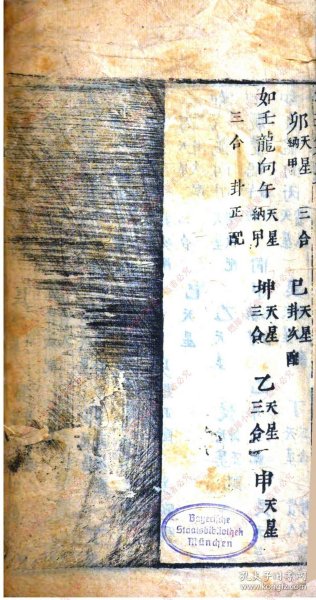 卯 天星納甲 三合 巳 天星卦次
如壬龍向午 天星納甲 坤 天星三合 乙 天星三合 申 天星
三合卦正配
Bayerische
Staatsbibliothek
München
孔夫子旧书网